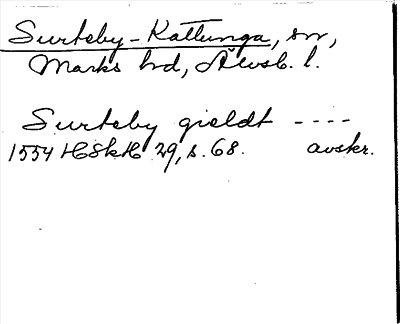 Surteby-Kattunga, sn,
Marks hd, Älvsb. l.
Surteby gieldt ----
1554 HSkH 29, s. 68. avskr.